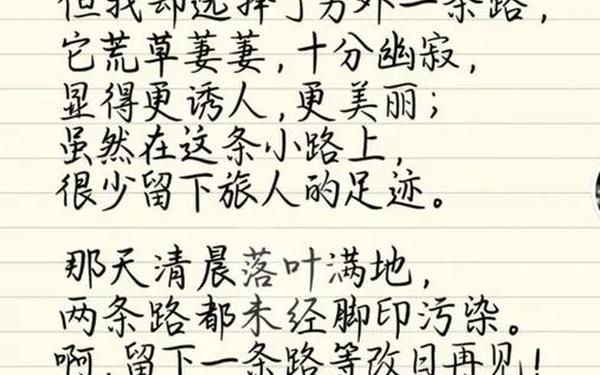 但我却选择了另外一条路,
它荒草萋萋,十分幽寂,
显得更诱人,更美丽;
虽然在这条小路上,
很少留下旅人的足迹。
那天清晨落叶满地,
两条路都未经脚印污染。
啊,留下一条路等改日再见!